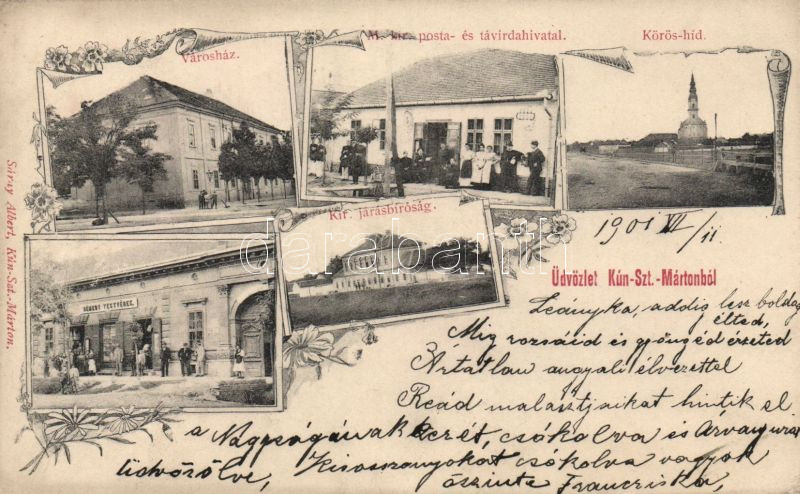 Városház.
M. kir. posta- és távirdahivatal.
Körös-híd.
Kir. járásbíróság.
Sáray Albert, Kún-Szt.-Márton.
darabanth
1901 VI/11
Üdvözlet Kún-Szt.-Mártonból
Leányka, addig lesz boldog
élted,
Míg rozsáid és gyöngéd érzeted
Ártatlan angyali élvezettel
Reád malasztjaikat hintik el
a Nagyságának kezét, csókolva és Árvay urat
üdvözölve, Kisasszonyokat csókolva vagyok
őszinte Franciska,